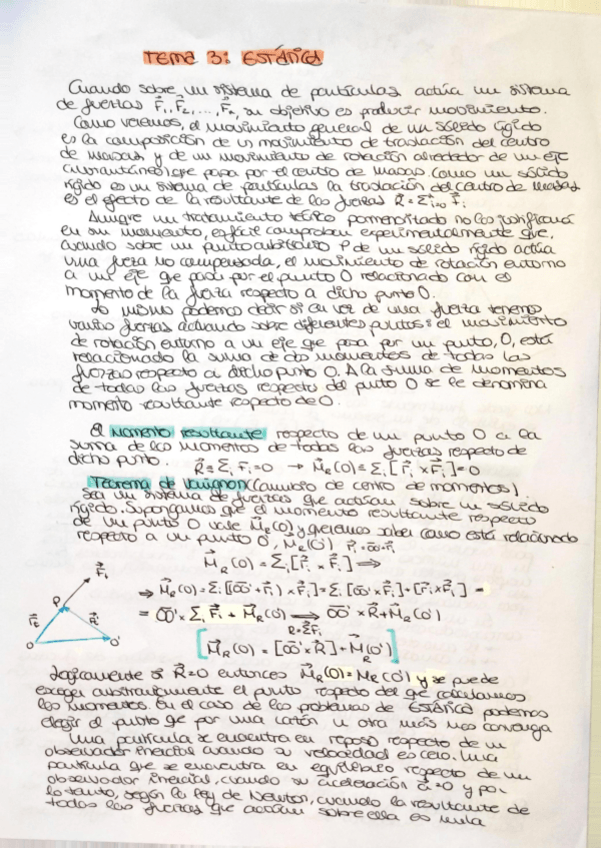 TEMA 3: ESTÁTICA
Cuando sobre un sistema de partículas actúa un sistema
de fuerzas F⃗₁, F⃗₂, ..., F⃗ₙ, su objetivo es producir movimiento.
Como veremos, el movimiento general de un sólido rígido
es la composición de un movimiento de traslación del centro
de masas y de un movimiento de rotación alrededor de un eje
que pasa por el centro de masas. Como un sólido
rígido es un sistema de partículas la traslación del centro de masas
es el efecto de la resultante de las fuerzas
Aunque un tratamiento teórico pormenorizado nos lo justificará
en su momento, es fácil comprobar experimentalmente que,
cuando sobre un punto arbitrario P de un sólido rígido actúa
una fuerza no compensada, el movimiento de rotación entorno
a un eje que pasa por el punto O relacionado con el
momento de la fuerza respecto a dicho punto O.
Lo mismo podemos decir si en vez de una fuerza tenemos
varias fuerzas actuando sobre diferentes puntos: el movimiento
de rotación entorno a un eje que pasa por un punto, O, está
relacionado la suma de los momentos de todas las
fuerzas respecto a dicho punto O. A la suma de momentos
de todas las fuerzas respecto del punto O se le denomina
momento resultante respecto de O.
El Momento resultante respecto de un punto O a la
suma de los momentos de todas las fuerzas respecto de
dicho punto. R⃗ = Σᵢ F⃗ᵢ = 0 → M⃗ᵣ(O) = Σᵢ [r⃗ᵢ × F⃗ᵢ] = 0
Teorema de Varignon (Cambio de centro de momentos)
Sea un sistema de fuerzas que actúan sobre un sólido
rígido. Supongamos que el momento resultante respecto
de un punto O vale M⃗ᵣ(O) y queremos saber como está relacionado
respecto a un punto O', M⃗ᵣ(O')
M⃗ᵣ(O) = Σᵢ [r⃗ᵢ × F⃗ᵢ] ⟹
⟹ M⃗ᵣ(O) = Σᵢ [(OO⃗' + r⃗ᵢ) × F⃗ᵢ] = Σᵢ [OO⃗' × F⃗ᵢ] + [r⃗ᵢ × F⃗ᵢ] =
= OO⃗' × Σᵢ F⃗ᵢ + M⃗ᵣ(O') ⟹ OO⃗' × R⃗ + M⃗ᵣ(O')
R = ΣF⃗ᵢ
[M⃗ᵣ(O) = [OO⃗' × R⃗] + M⃗ᵣ(O')]
F⃗ᵢ
P
r⃗ᵢ
O
O'
Lógicamente si R⃗ = 0 entonces M⃗ᵣ(O) = Mᵣ(O') y se puede
escoger arbitrariamente el punto respecto del que calculamos
los momentos. En el caso de los problemas de Estática podemos
elegir el punto que por una razón u otra más nos convenga
Una partícula se encuentra en reposo respecto de un
observador inercial cuando su velocidad es cero. Una
partícula que se encuentra en equilibrio respecto de un
observador inercial, cuando su aceleración a⃗ = 0 y por
lo tanto, según la ley de Newton, cuando la resultante de
todas las fuerzas que actúan sobre ella es nula